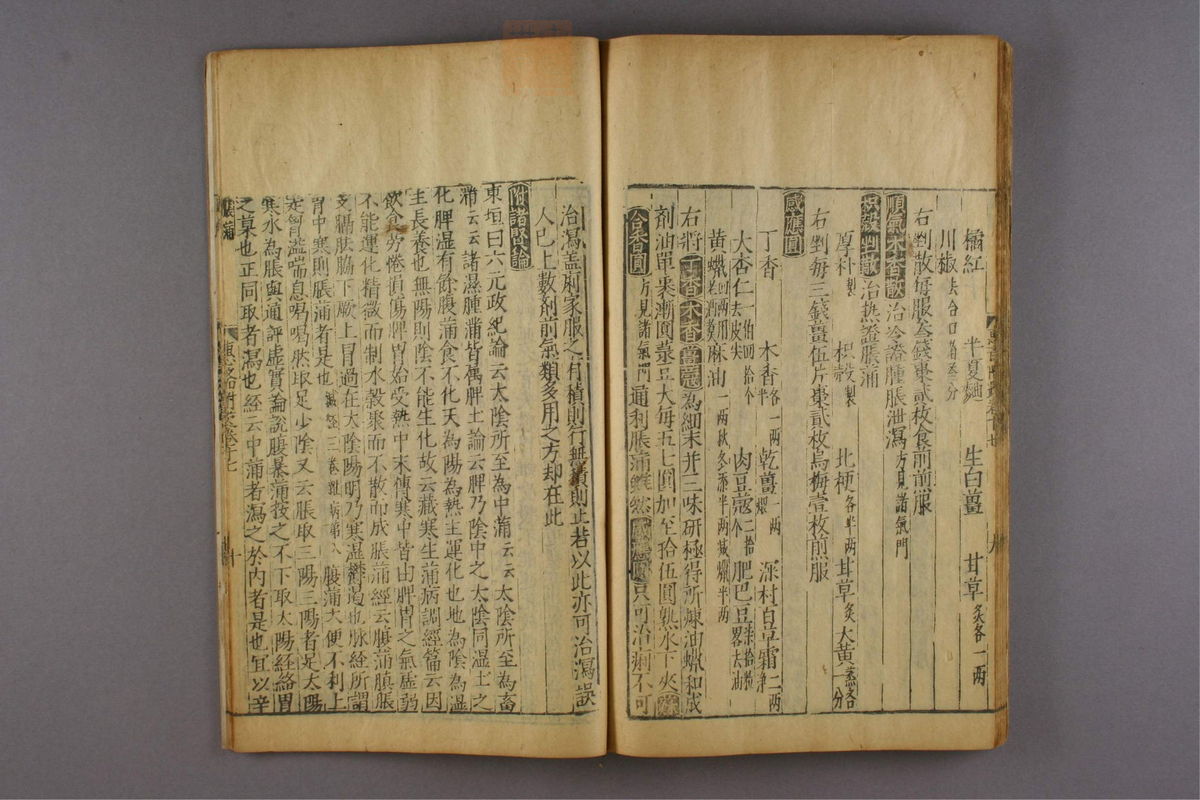 橘紅 半夏麯 生白薑 甘草炙各一兩
川椒去合口者叁分
右剉散每服叁錢棗貳枚食前煎服
順氣木香散治冷證腫脹泄瀉方見諸氣門
枳殼剉散治热證脹蒲
厚朴製 枳殼製 北梗各半兩 甘草炙 大黄蒸各一分
右剉每三錢薑伍片棗貳枚烏梅壹枚煎服
感應圓
丁香 木香各一兩半 乾薑煨一兩 深村百草霜二兩
大杏仁一伯四拾个去皮尖 肉豆蔻二拾个 肥巴豆
黄蠟四兩 麻油一兩秋冬添半兩减蠟半兩
右將丁香木香薑蔻為細末并三味研極得所煉油蠟和成
劑油單裹漸圓菉豆大每五七圓加至拾伍圓熟水下夾
合香圓方見諸氣門通利脹蒲縱然感應圓只可治痢不可
治瀉盖痢家服之有積則行無積則止若以此亦可治瀉誤
人巳上數劑前氣類多用之方却在此
附諸賢論
東垣曰六元政紀論云太陰所至為中蒲云云太陰所至為畜
蒲云云諸濕腫蒲皆属脾土論云脾乃陰中之太陰同濕土之
化脾湿有餘腹蒲食不化天為陽為熱主運化也地為陰為湿
主長養也無陽則陰不能生化故云藏寒生蒲病調經篇云因
飲食劳倦損傷脾胃始受熱中末傳寒中皆由脾胃之氣虚弱
不能運化精微而制水穀聚而不散而成脹蒲經云腹蒲䐜脹
支膈胠脇下厥上冒過在太陰陽明乃寒湿鬱遏也脉經所謂
胃中寒則脹蒲者是也 腹蒲大便不利上
走胷嗌喘息喝喝然取足少陰又云脹取三陽三陽者是太陽
寒水為脹與通評虚實論說腹暴蒲按之不下取太陽経絡胃
之募也正同取者瀉也經云中蒲者瀉之於内者是也宜以辛